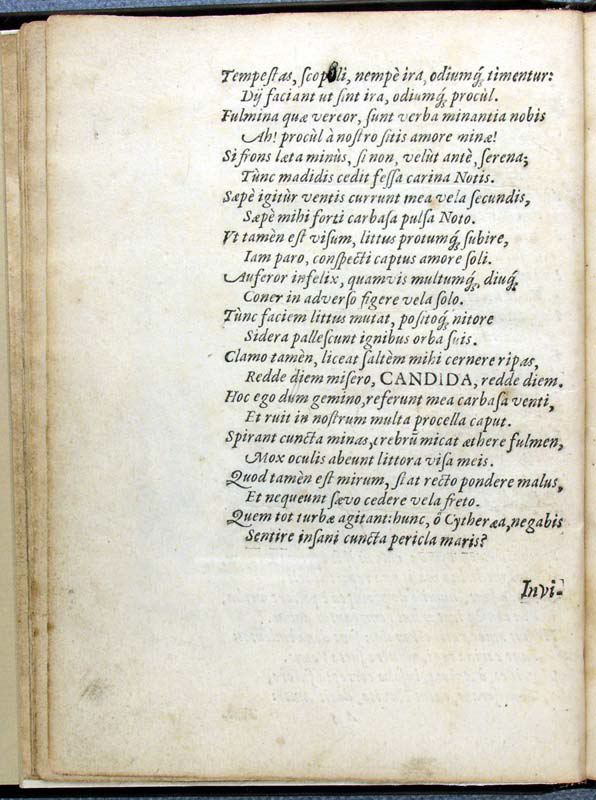 Tempeſtas, ſcopuli, nempè ira, odiumq́; timentur:
Dij faciant ut ſint ira, odiumq́; procùl.
Fulmina quæ vereor, ſunt verba minantia nobis
Ah! procùl à noſtro ſitis amore minæ!
Si frons læta minùs, ſi non, velùt antè, ſerena;
Tùnc madidis cedit feſſa carina Notis.
Sæpè igitùr ventis currunt mea vela ſecundis,
Sæpè mihi forti carbaſa pulſa Noto.
Vt tamèn eſt viſum, littus protumq́; ſubire,
Iam paro, conſpecti captus amore ſoli.
Auferor infelix, quamvis multumq́; diuq́;
Coner in adverſo figere vela ſolo.
Tùnc faciem littus mutat, poſitoq́; nitore
Sidera palleſcunt ignibus orba ſuis.
Clamo tamèn, liceat ſaltèm mihi cernere ripas,
Redde diem miſero, CANDIDA, redde diem.
Hoc ego dum gemino, referunt mea carbaſa venti,
Et ruit in noſtrum multa procella caput.
Spirant cuncta minas, crebrũ micat æthere fulmen,
Mox oculis abeunt littora viſa meis.
Quod tamèn eſt mirum, ſtat recto pondere malus,
Et nequeunt ſævo cedere vela freto.
Quem tot turbæ agitant: hunc, ô Cytheræa, negabis
Sentire inſani cuncta pericla maris?
Invi-